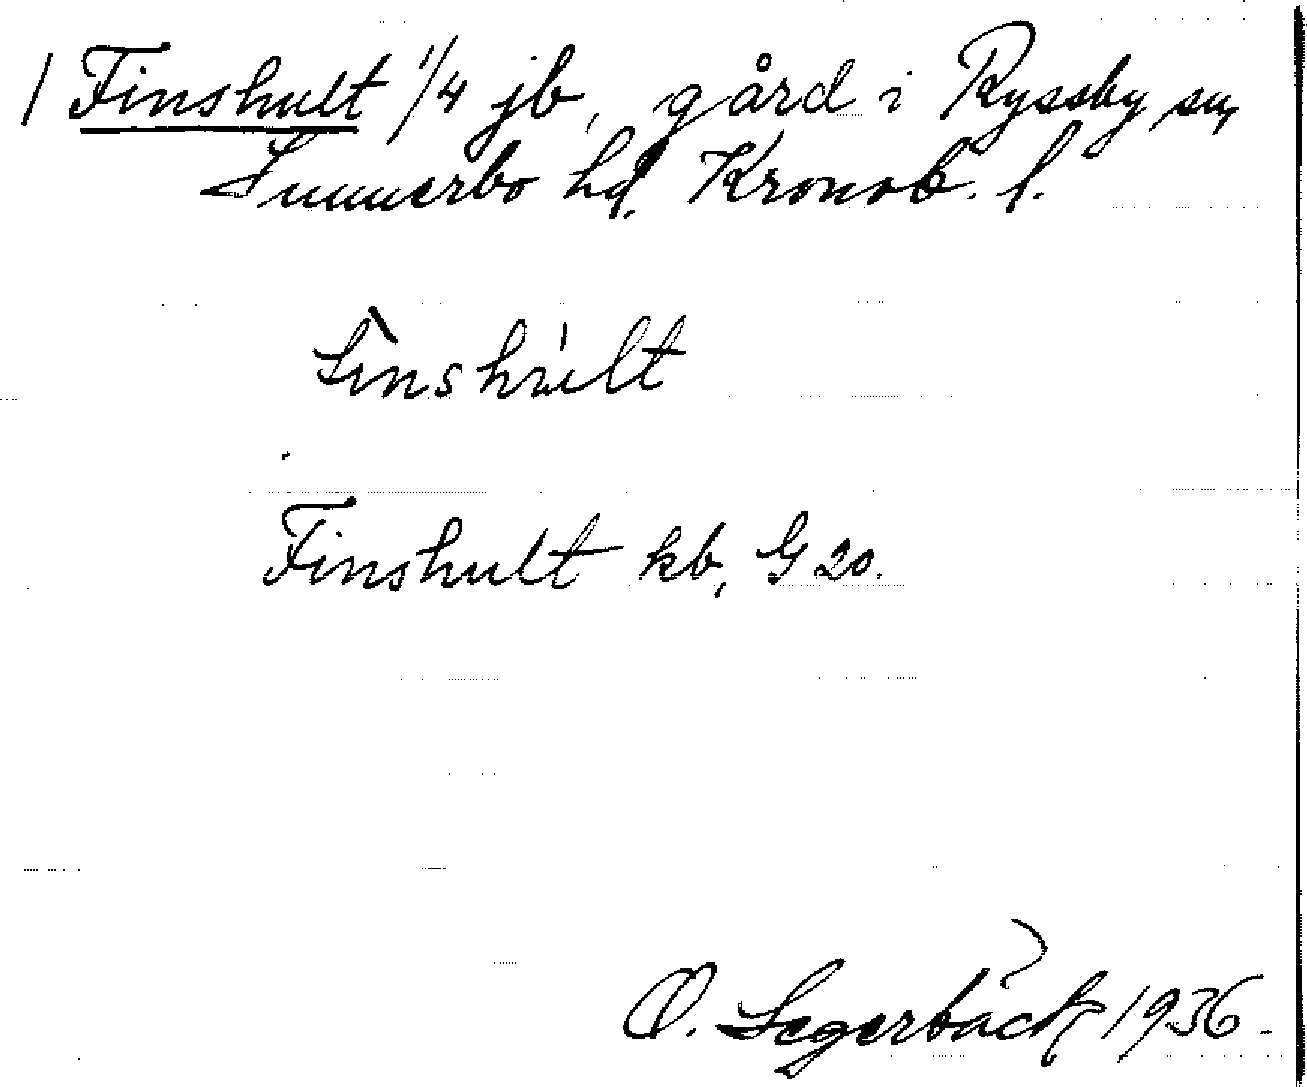 / Finshult 1/4 jb, gård i Ryssby sn,
Sunnerbo hd. Kronob. l.
fìnshúlt
Finshult kb, G 20.
O. Segerbäck 1936.